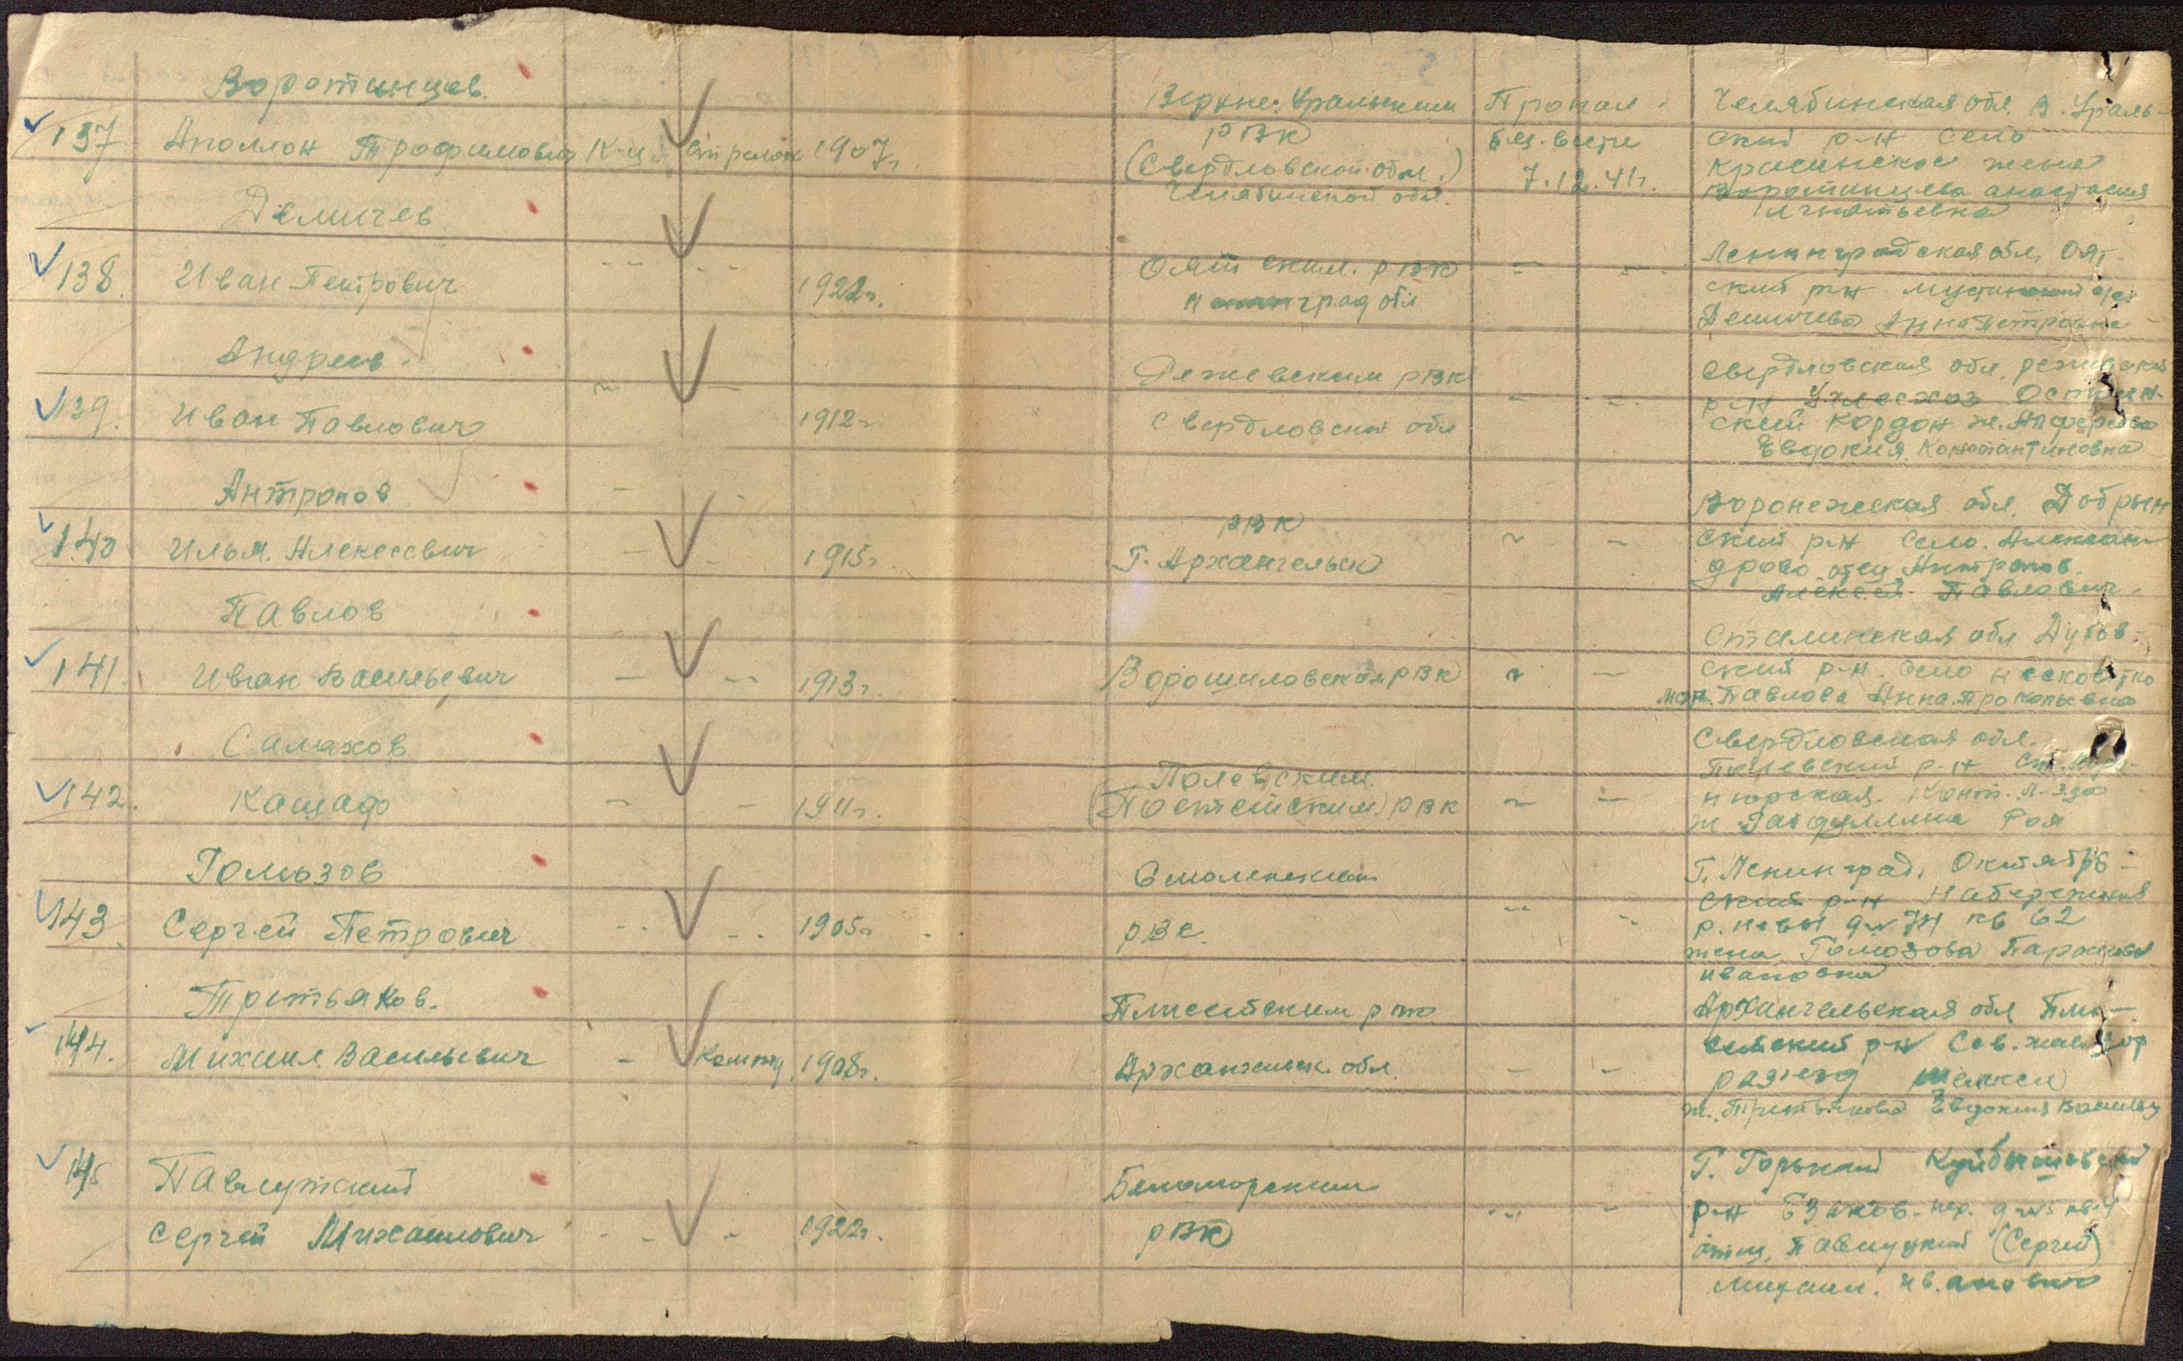 Воротинцев.
137 Аполлон Трофимович К-ц стрелок 1907г.
Верхне-Уральским
РВК
(Свердловской обл.)
Челябинской обл.
Пропал
без вести
7.12.41г.
Челябинская обл. В. Ураль-
ский р-н село
Красинское жена
Воротинцева Анастасия
Игнатьевна
Демичев
138. Иван Петрович -- -- 1922г.
Оятским РВК
Ленинград обл
Ленинградская обл, Оят-
ский р-н
Демичева Анна Петровна
Андреев
139. Иван Павлович ~ - 1912г
Режевским РВК
Свердловской обл
Свердловская обл. Режевской
р-н Углесхоз
ский Кордон ж.
Евдокия Константиновна
Антропов
140 Илья Алексеевич - - 1915г
РВК
Г. Архангельск
Воронежская обл. Добрин
ский р-н село. Алексан-
дрово отец Антропов.
Алексей Павлович.
Павлов
141. Иван Васильевич - -- 1913г.
Ворошиловским РВК
Сталинская обл Дубов-
ский р-н. село
мать. Павлова Анна Прокопьевна
Салахов
142. Кашаф ~ - 1911г.
Полевским.
РВК
Свердловская обл.
Полевский р-н ст.
ж Роя
Гомозов
143. Сергей Петрович -- -- 1905г
Смоленским
РВК.
Г. Ленинград, Октябрь-
ский р-н Набережная
р. Невы д № 74 кв 62
жена Гомозова
Ивановна
Третьяков.
144. Михаил Васильевич - 1908г.
Плисецким РВК
Архангельск. обл.
Архангельская обл Пли-
сецкий р-н Сев. жел дор
разъезд
ж. Третьякова Евдокия
145 Павлуцкий
Сергей Михайлович -- - 1922г.
Беломорским
РВК
Г. Горький Куйбышевский
р-н пер.
отец, Павлуцкий (Сергей)
Михаил. Иванович